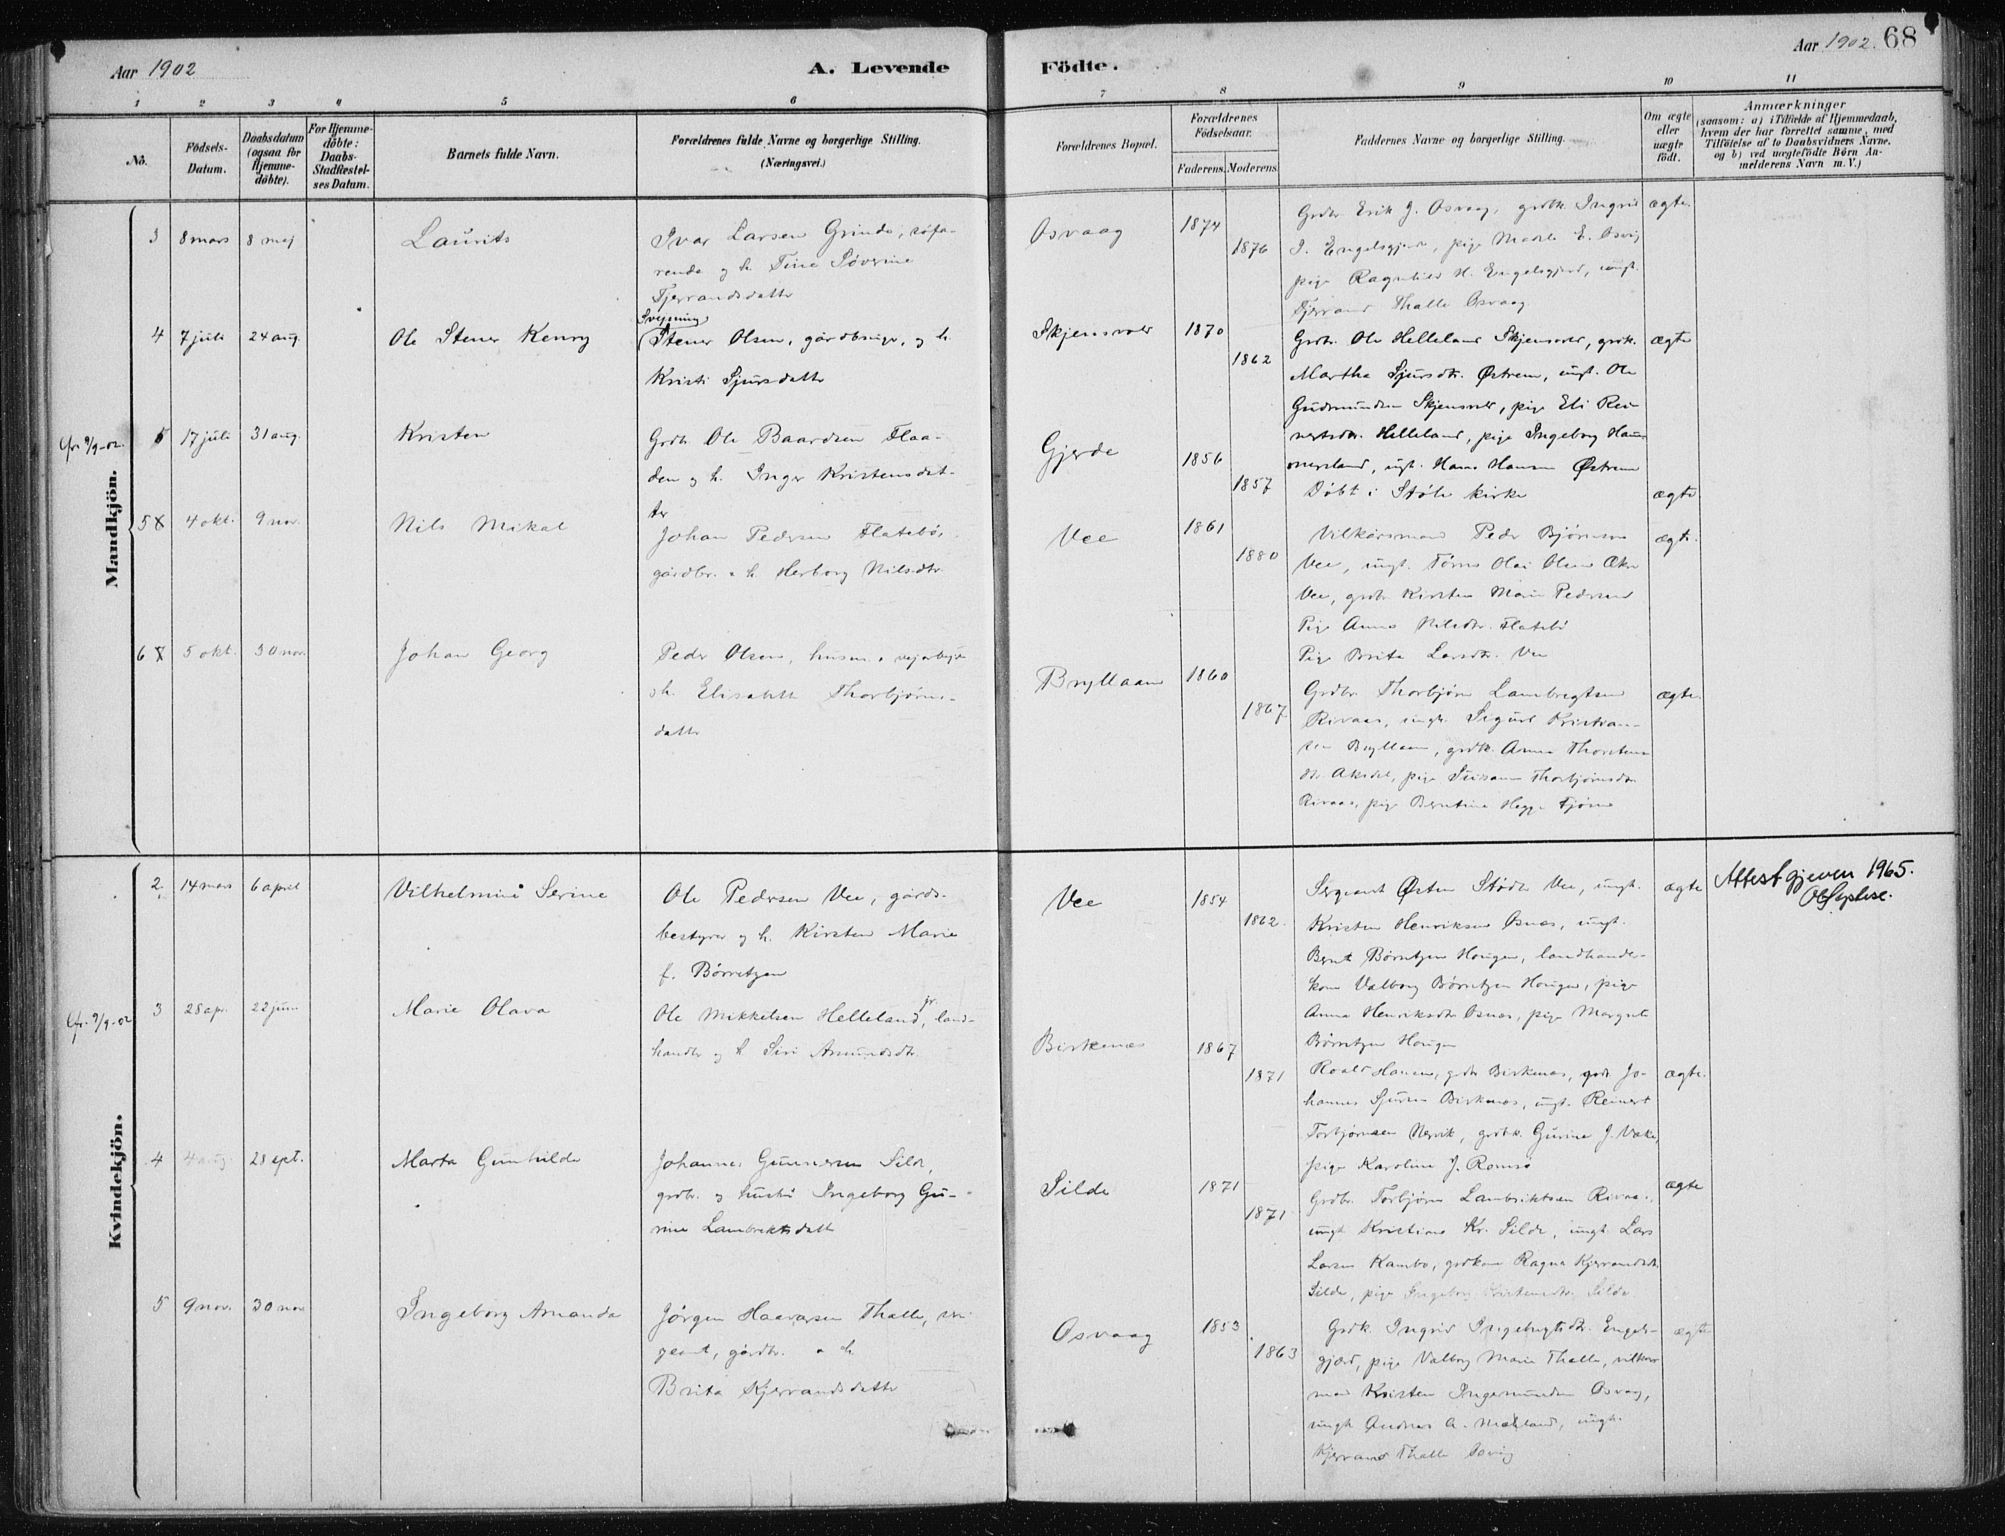 Aar 1902
A. Levende
Födte.
Aar 1902. 68
1 2 3 4 5 6 7 8 9 10 11
No.
Födsels-Datum.
Daabsdatum (ogsaa for Hjemme-døbte).
For Hjemme-døbte: Daabs-Stadfæstel-ses Datum.
Barnets fulde Navn.
Forældrenes fulde Navne og borgerlige Stilling.
(Næringsvei.)
Forældrenes Bopæl.
Forældrenes Födselsaar.
Faderens. Moderens.
Faddernes Navne og borgerlige Stilling.
Om ægte eller uægte født.
Anmærkninger
(saasom: a) i Tilfælde af Hjemmedaab,
hvem der har forrettet samme, med
Tilføielse af to Daabsvidners Navne,
og b) ved uægtefödte Börn An-
melderens Navn m. V.)
Mandkjön.
3 8 mars 8 maj
Laurits
Ivar Larsen Grinde,
og h. Tine Søverine
Tjerrandsdatter
Osvaag
1874
1876
Grdbr. Erik J. Osvaag, grdk. Ingrid
I. Engelsgjerd, pige E. Osvåg
pige Ragnhild H. Engelsgjerd, ungk.
Thalle Osvaag
ægte
4 7 juli 24 aug.
Ole Stener Kenry
Svejsning
Stener Olsen, gårdbruger, og h.
Kristi Sjursdatter
Skjensvold
1870
1862
Grdbr. Ole Helleland Skjensvold, grdk.
Martha Sjursdtr. Østrem, ungk. Ole
Gudmundsen Skjensvold, pige Eli Rei-
nertsdtr. Helleland, pige Ingeborg Ham-
mersland, ungk. Hans Hansen Østrem
ægte
9/9-02.
5 17 juli 31 aug.
Kristen
Grdbr. Ole Baardsen Flaa-
den og h. Inger Kristensdat-
ter
Gjerde
1856
1857
Døbt i Støle kirke
ægte
5 4 okt. 9 nov.
Nils Mikal
Johan Pedersen Flatebø,
gårdbr. o h. Herborg Nilsdtr.
Vee
1861
1880
Vilkårsmand Peder Bjørnsen
Vee, ungk. Olai Olsen
Vee, grdbr. Kirsten Marie Pedersen
Pige Anna Nilsdtr. Flatebø
Pige Brita Larsdtr. Vee
ægte
6 5 okt. 30 nov.
Johan Georg
Peder Olsen, husm. o vejarbejder
o h. Elisabeth Thorbjørns-
datter
Bryllaan
1860
1867
Grdbr. Thorbjørn Lambregtsen
Rivaas, ungk. Sigurd Kristian-
sen Bryllaan, grdk. Anna Thorstens
dtr. Akedal, pige Susanne Thorbjørnsdtr.
Rivaas, pige Berntine Hegge
ægte
Kvindekjön.
2 14 mars 6 april
Vilhelmine Serine
Ole Pedersen Vee, gårds-
bestyrer og h. Kirsten Marie
f. Børretzen
Vee
1854
1862
Sergeant Østen Vee, ungk.
Kristen Henriksen Osnas, ungk.
Bernt Børretzen Hougen, landhandler-
kone Valborg Børretzen Hougen, pige
Anna Henriksdtr. Osnas, pige Margrete
Børretzen Hougen
ægte
Attest gjeven 1965.
9/9-02
3 28 apr. 22 juni
Marie Olava
Ole Mikkelsen Helleland jr., land-
handler og h. Siri Amundsdtr.
Birkenæs
1867
1871
Roald Hansen, grdbr. Birkenæs, grdbr. Jo-
hannes Sjursen Birkenæs, ungk. Reinert
Torbjørnsen Nervik, grdbk. Gurine J. Vake,
pige Karoline J. Romsa
ægte.
4 4 aug. 28 sept.
Marta Gunhilda
Johannes Gunnersen Silde,
grdbr. og hustru Ingeborg Gu-
rine Lambrektsdatter
Silde
1871
1871
Grdbr. Torbjørn Lambriktsen Rivaas,
ungk Kristian Kr. Silde, ungk. Lars
Larsen Kambo, grdkone Ragna Kjerrandsdtr.
Silde, pige Ingeborg Kristensdtr. Silde
ægte
5 9 nov. 30 nov
Ingeborg Amanda
Jørgen Haavarsen Thalle, ser-
geant, gårdbr. o h
Brita Kjerrandsdatter
Osvaag
1853
1863
Grdk. Ingrid Ingebrigtsdtr. Engels-
gjerd, pige Valborg Marie Thalle, vilkårs
mand Kristen Ingemundsen Osvag,
ungk Andreas A. Mæland, ungk.
Kjerrand Thalle Osvåg
ægte